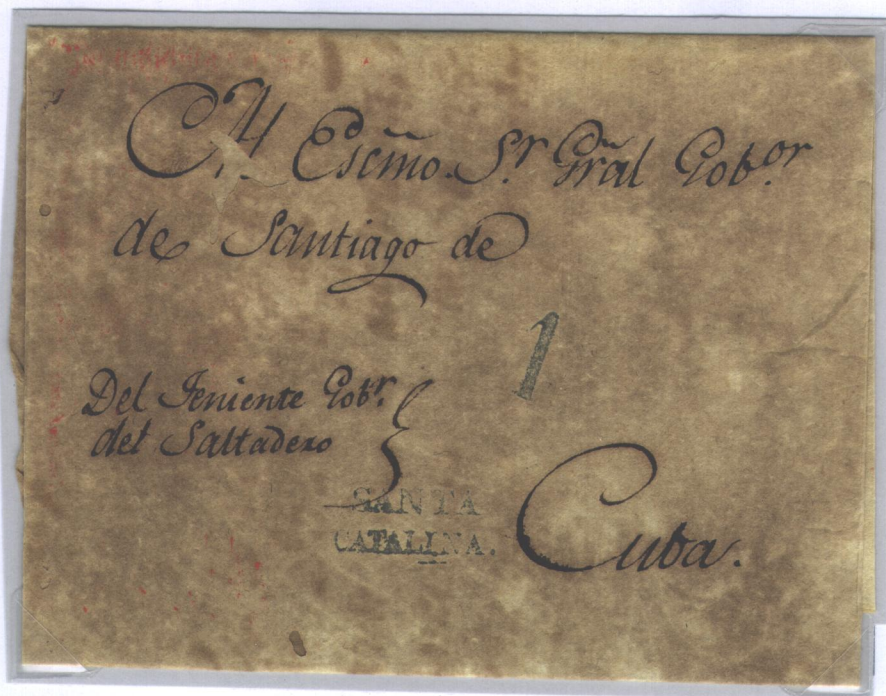 Al Escmõ. S.r Grãl Gob.or
de Santiago de
1
Del Teniente Gobr.
del Saltadero
SANTA
CATALINA.
Cuba.